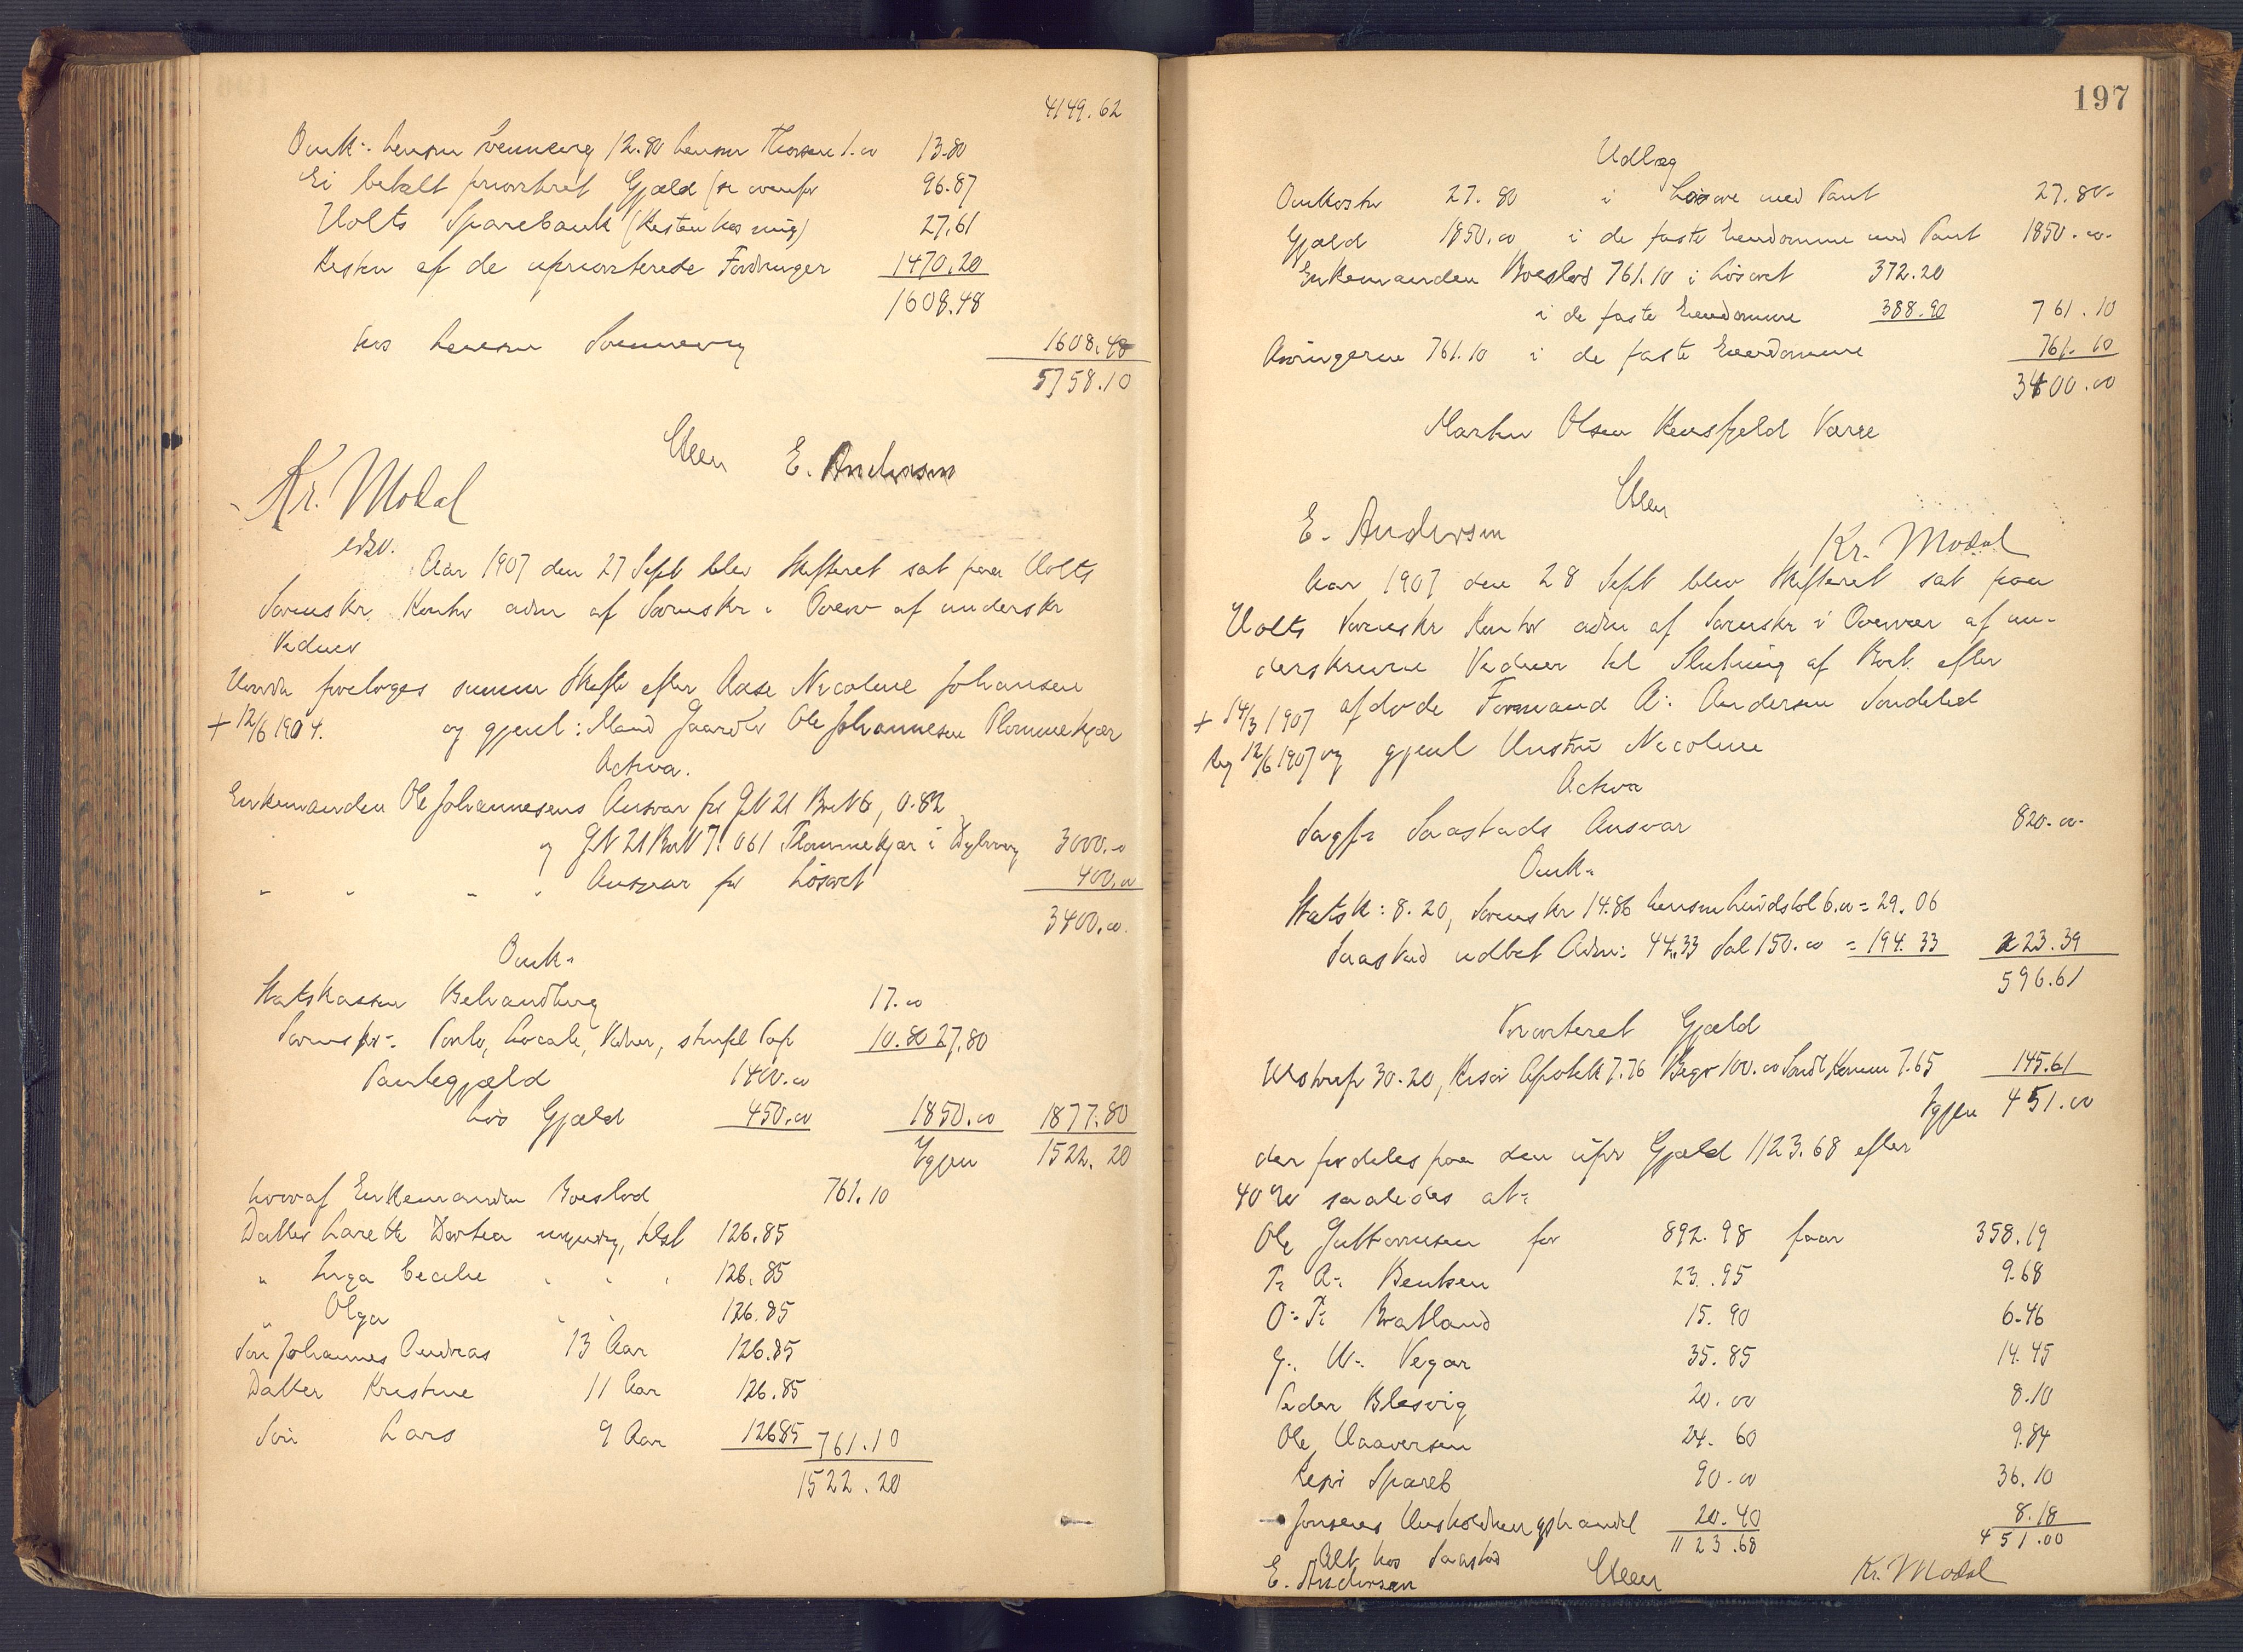 4149.62
Omk: Lensm Sennevig 12.80 Lensm Thorsen 1.00 13.80
Ei betalt prioritret Gjæld (se ovenfor 96.87
Holts Sparebank (Resten hos mig) 27.61
Resten af de uprioriterede Fordringer 1470.20
1608.48
hos Lensm Sennevig 1608.48
5758.10
E. Andersen
Kr. Modal
edsv.
Aar 1907 den 27 Sept blev Skifteret sat paa Holts
Sorenskr. Kontor adm af Sorenskr i Overv af underskr
Vidner
Hvorda foretoges summ Skifte efter Aase Nicoline Johansen
+ 12/6 1904. og gjenl: Mand Gaardbr Ole Johannesen Plommekjær
Activa.
Enkemanden Ole Johannesens Ansvar for GN 21 BrN 6, 0.82
og GN 21 BrN 7. 061 Plommekjær i Dybvaag 3000.00
" " " " Ansvar for Løsøret 400.00
3400.00.
Omk:
Statskassen Behandling 17.00
Sorenskr: Porto, Locale, Vidner, stemplt Pap 10.80 27.80
Pantegjæld 1400.00
Løs Gjæld 450.00 1850.00 1877.80
Igjen 1522.20
hvoraf Enkemanden Boeslod 761.10
Datter Larette Dortea umyndig, tilst 126.85
" Inga Cecilie " " " 126.85
" Olga " " 126.85
Søn Johannes Andreas 13 Aar 126.85
Datter Kristine 11 Aar 126.85
Søn Lars 9 Aar 126.85 761.10
1522.20
197
Udlæg
Omkostn 27.80 i Løsøre med Pant 27.80.
Gjæld 1850.00 i de faste Eiendomme med Pant 1850.00.
Enkemanden Boeslod 761.10 i Løsøret 372.20
i de faste Eiendomme 388.90 761.10
Arvingerne 761.10 i de faste Eiendomme 761.10
3400.00
Martin Olsen Rensfjeld Værge
E. Andersen
Kr. Modal
Aar 1907 den 28 Sept blev Skifteret sat paa
Holts Sorenskr Kontor adm af Sorenskr i Overvær af un-
derskrevne Vidner til Slutning af Boet efter
+ 14/3 1907 afdøde Formand A: Andersen Søndeled
Reg 12/6 1907 og gjenl Hustru Nicoline
Activa
Sagfr Saastads Ansvar 820.00.
Omk:
Statsk: 8.20, Sorenskr 14.86 Lensm Lindstøl 6.00 = 29.06
Saastad udbet Adm: 44.33 Sal 150.00 = 194.33 223.39
596.61
Prioriteret Gjæld
30.20, Risør Apothek 7.76 Begr 100.00 Søndl Komm 7.65 145.61
Igjen 451.00
der fordeles paa den upr Gjæld 1123.68 efter
40 % saaledes at:
Ole Guttormsen for 892.98 faar 358.19
T: A: Bentsen 23.95 9.68
O: T: Bratland 15.90 6.46
G. W: Vegar 35.85 14.45
Peder Blesvig 20.00 8.10
Ole Haaversen 24.60 9.84
Risør Spareb 90.00 36.10
Jensens Husholdningshandel 20.40 8.18
1123.68 451.00
Alt hos Saastad
E. Andersen Kr. Modal